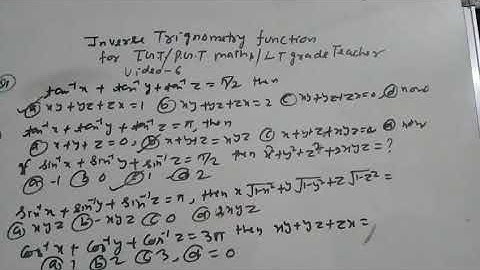 Inverse Trignometry function
for T.G.T/P.G.T maths/LT grade Teacher
Video-6
tan⁻¹x + tan⁻¹y + tan⁻¹z = π/2 then
ⓐ xy+yz+zx=1 ⓑ xy+yz+zx=2 ⓒ xy+yz+zx=0 ⓓ none
tan⁻¹x + tan⁻¹y + tan⁻¹z = π, then
ⓐ x+y+z=0, ⓑ x+y+z=xyz ⓒ x+y+z+xyz=0 ⓓ none
If sin⁻¹x + sin⁻¹y + sin⁻¹z = π/2 then x²+y²+z²+2xyz=?
ⓐ -1 ⓑ 0 ⓒ 1 ⓓ 2
sin⁻¹x + sin⁻¹y + sin⁻¹z = π, then x√1-x²+y√1-y²+z√1-z²=
ⓐ xyz ⓑ -xyz ⓒ 0 ⓓ 2xyz
cos⁻¹x + cos⁻¹y + cos⁻¹z = 3π then xy+yz+zx=
ⓐ 1 ⓑ 2 ⓒ 3, ⓓ = 0